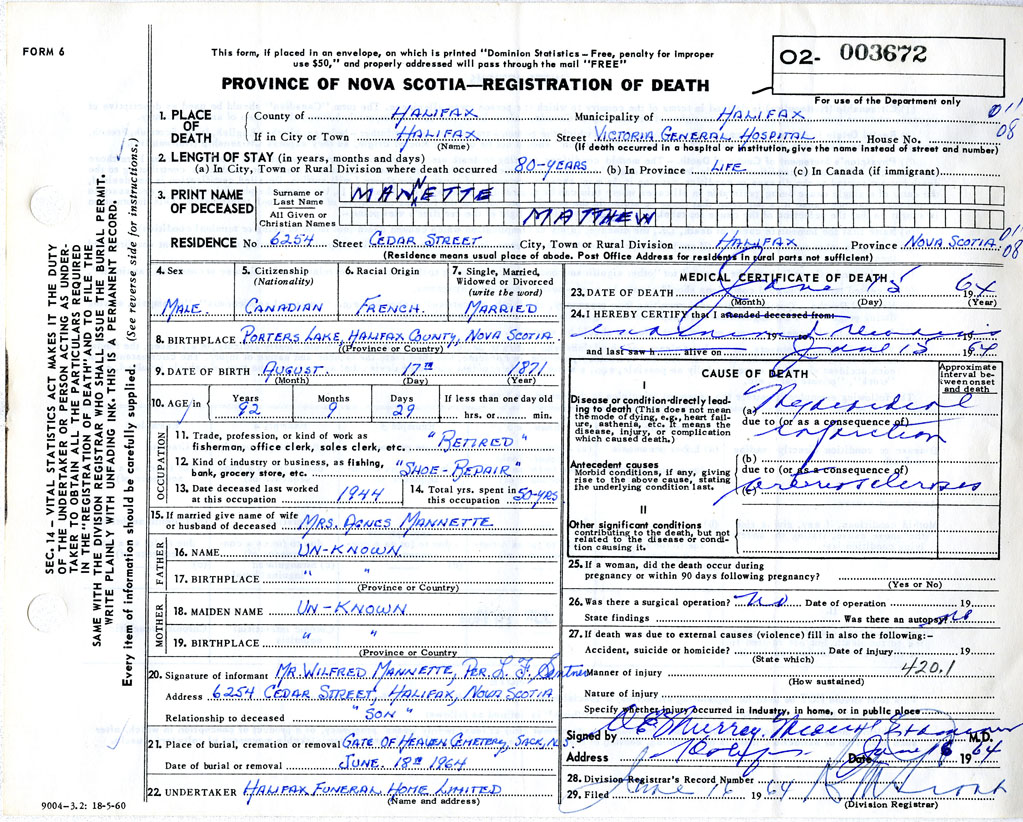 FORM 6
This form, if placed in an envelope, on which is printed "Dominion Statistics – Free, penalty for improper
use $50," and properly addressed will pass through the mail "FREE"
PROVINCE OF NOVA SCOTIA—REGISTRATION OF DEATH
02- 003672
For use of the Department only
1. PLACE OF DEATH
County of HALIFAX Municipality of HALIFAX 01
If in City or Town HALIFAX Street VICTORIA GENERAL HOSPITAL House No. 08
(Name) (If death occurred in a hospital or institution, give the name instead of street and number)
2. LENGTH OF STAY (in years, months and days)
(a) In City, Town or Rural Division where death occurred 80-YEARS (b) In Province LIFE (c) In Canada (if immigrant)
3. PRINT NAME OF DECEASED
Surname or Last Name MANNETTE
All Given or Christian Names MATTHEW
RESIDENCE No 6254 Street CEDAR STREET City, Town or Rural Division HALIFAX Province NOVA SCOTIA 01 08
(Residence means usual place of abode. Post Office Address for residents in rural parts not sufficient)
4. Sex MALE
5. Citizenship (Nationality) CANADIAN
6. Racial Origin FRENCH
7. Single, Married, Widowed or Divorced (write the word) MARRIED
8. BIRTHPLACE PORTERS LAKE, HALIFAX COUNTY, NOVA SCOTIA
(Province or Country)
9. DATE OF BIRTH AUGUST 17TH 1871
(Month) (Day) (Year)
10. AGE in Years 92 Months 9 Days 29 If less than one day old hrs. or min.
OCCUPATION
11. Trade, profession, or kind of work as "RETIRED"
fisherman, office clerk, sales clerk, etc.
12. Kind of industry or business, as fishing, "SHOE-REPAIR"
bank, grocery store, etc.
13. Date deceased last worked at this occupation 1944
14. Total yrs. spent in this occupation 50-YRS
15. If married give name of wife or husband of deceased MRS. AGNES MANNETTE
FATHER
16. NAME UN-KNOWN
17. BIRTHPLACE " "
(Province or Country)
MOTHER
18. MAIDEN NAME UN-KNOWN
19. BIRTHPLACE " "
(Province or Country)
20. Signature of informant MR. WILFRED MANNETTE, PER. L. F.
Address 6254 CEDAR STREET, HALIFAX, NOVA SCOTIA
Relationship to deceased "SON"
21. Place of burial, cremation or removal GATE OF HEAVEN CEMETERY, SACK, N.S.
Date of burial or removal JUNE. 18TH 1964
22. UNDERTAKER HALIFAX FUNERAL HOME LIMITED
(Name and address)
MEDICAL CERTIFICATE OF DEATH
23. DATE OF DEATH June 15 1964
(Month) (Day) (Year)
24. I HEREBY CERTIFY that I attended deceased from:
19
and last saw h alive on June 15 1964
CAUSE OF DEATH
Approximate interval between onset and death
I
Disease or condition directly leading to death (This does not mean the mode of dying, e.g., heart failure, asthenia, etc. It means the disease, injury, or complication which caused death.)
(a) Myocardial
due to (or as a consequence of)
infarction
Antecedent causes
Morbid conditions, if any, giving rise to the above cause, stating the underlying condition last.
(b)
due to (or as a consequence of)
(c) arteriosclerosis
II
Other significant conditions
contributing to the death, but not related to the disease or condition causing it.
25. If a woman, did the death occur during
pregnancy or within 90 days following pregnancy?
(Yes or No)
26. Was there a surgical operation? no Date of operation 19
State findings Was there an autopsy? no
27. If death was due to external causes (violence) fill in also the following:–
Accident, suicide or homicide? Date of injury 19
(State which)
Manner of injury 420.1
(How sustained)
Nature of injury
Specify whether injury occurred in Industry, in home, or in public place
Signed by Murray M.D.
Address Date June 16 1964
28. Division Registrar's Record Number
29. Filed June 16 1964
(Division Registrar)
SEC. 14 – VITAL STATISTICS ACT MAKES IT THE DUTY
OF THE UNDERTAKER OR PERSON ACTING AS UNDER-
TAKER TO OBTAIN ALL THE PARTICULARS REQUIRED
IN THE "REGISTRATION OF DEATH" AND TO FILE THE
SAME WITH THE DIVISION REGISTRAR WHO SHALL ISSUE THE BURIAL PERMIT.
WRITE PLAINLY WITH UNFADING INK. THIS IS A PERMANENT RECORD.
Every item of information should be carefully supplied. (See reverse side for instructions.)
9004–3.2: 18-5-60